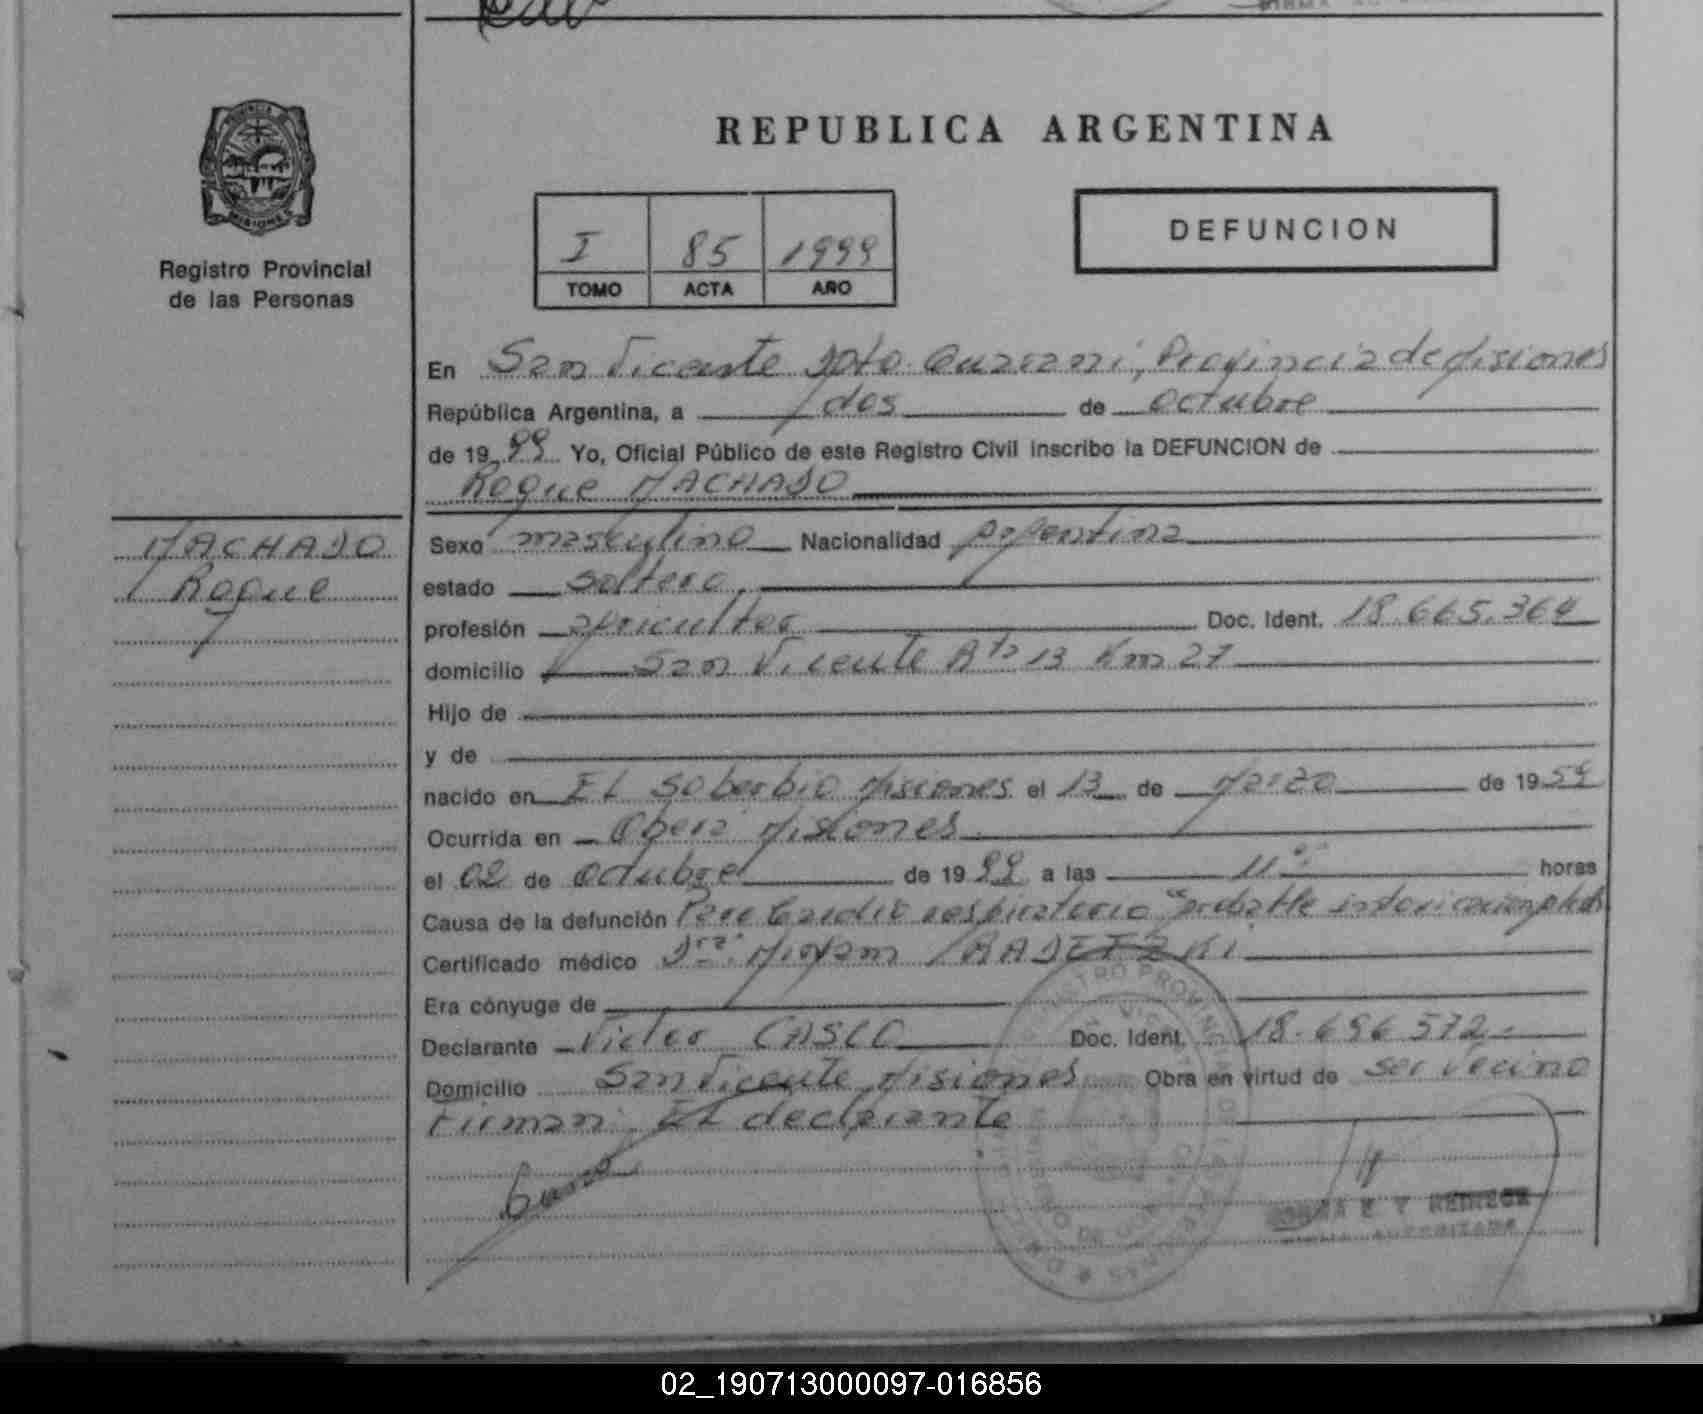 REPUBLICA ARGENTINA
PROVINCIA DE
MISIONES
Registro Provincial
de las Personas
I 85 1999
TOMO ACTA AÑO
DEFUNCION
En San Vicente Dpto. Guarani, Provincia de Misiones
República Argentina, a dos de octubre
de 1999 Yo, Oficial Público de este Registro Civil inscribo la DEFUNCION de
Roque MACHADO
MACHADO
Roque
Sexo masculino Nacionalidad argentina
estado soltero
profesión agricultor Doc. Ident. 18.665.364
domicilio San Vicente Rta 13 Km 27
Hijo de
y de
nacido en EL Soberbio Misiones el 13 de Marzo de 1959
Ocurrida en Oberá Misiones
el 02 de octubre de 1999 a las 11 horas
Causa de la defunción Paro Cardio respiratorio "probable intoxicacion
Certificado médico Dra. Miryam RADETZKI
Era cónyuge de
Declarante Victor CASCO Doc. Ident. 18.696.572
Domicilio San Vicente Misiones Obra en virtud de ser vecino
Firman: EL declarante
02_190713000097-016856